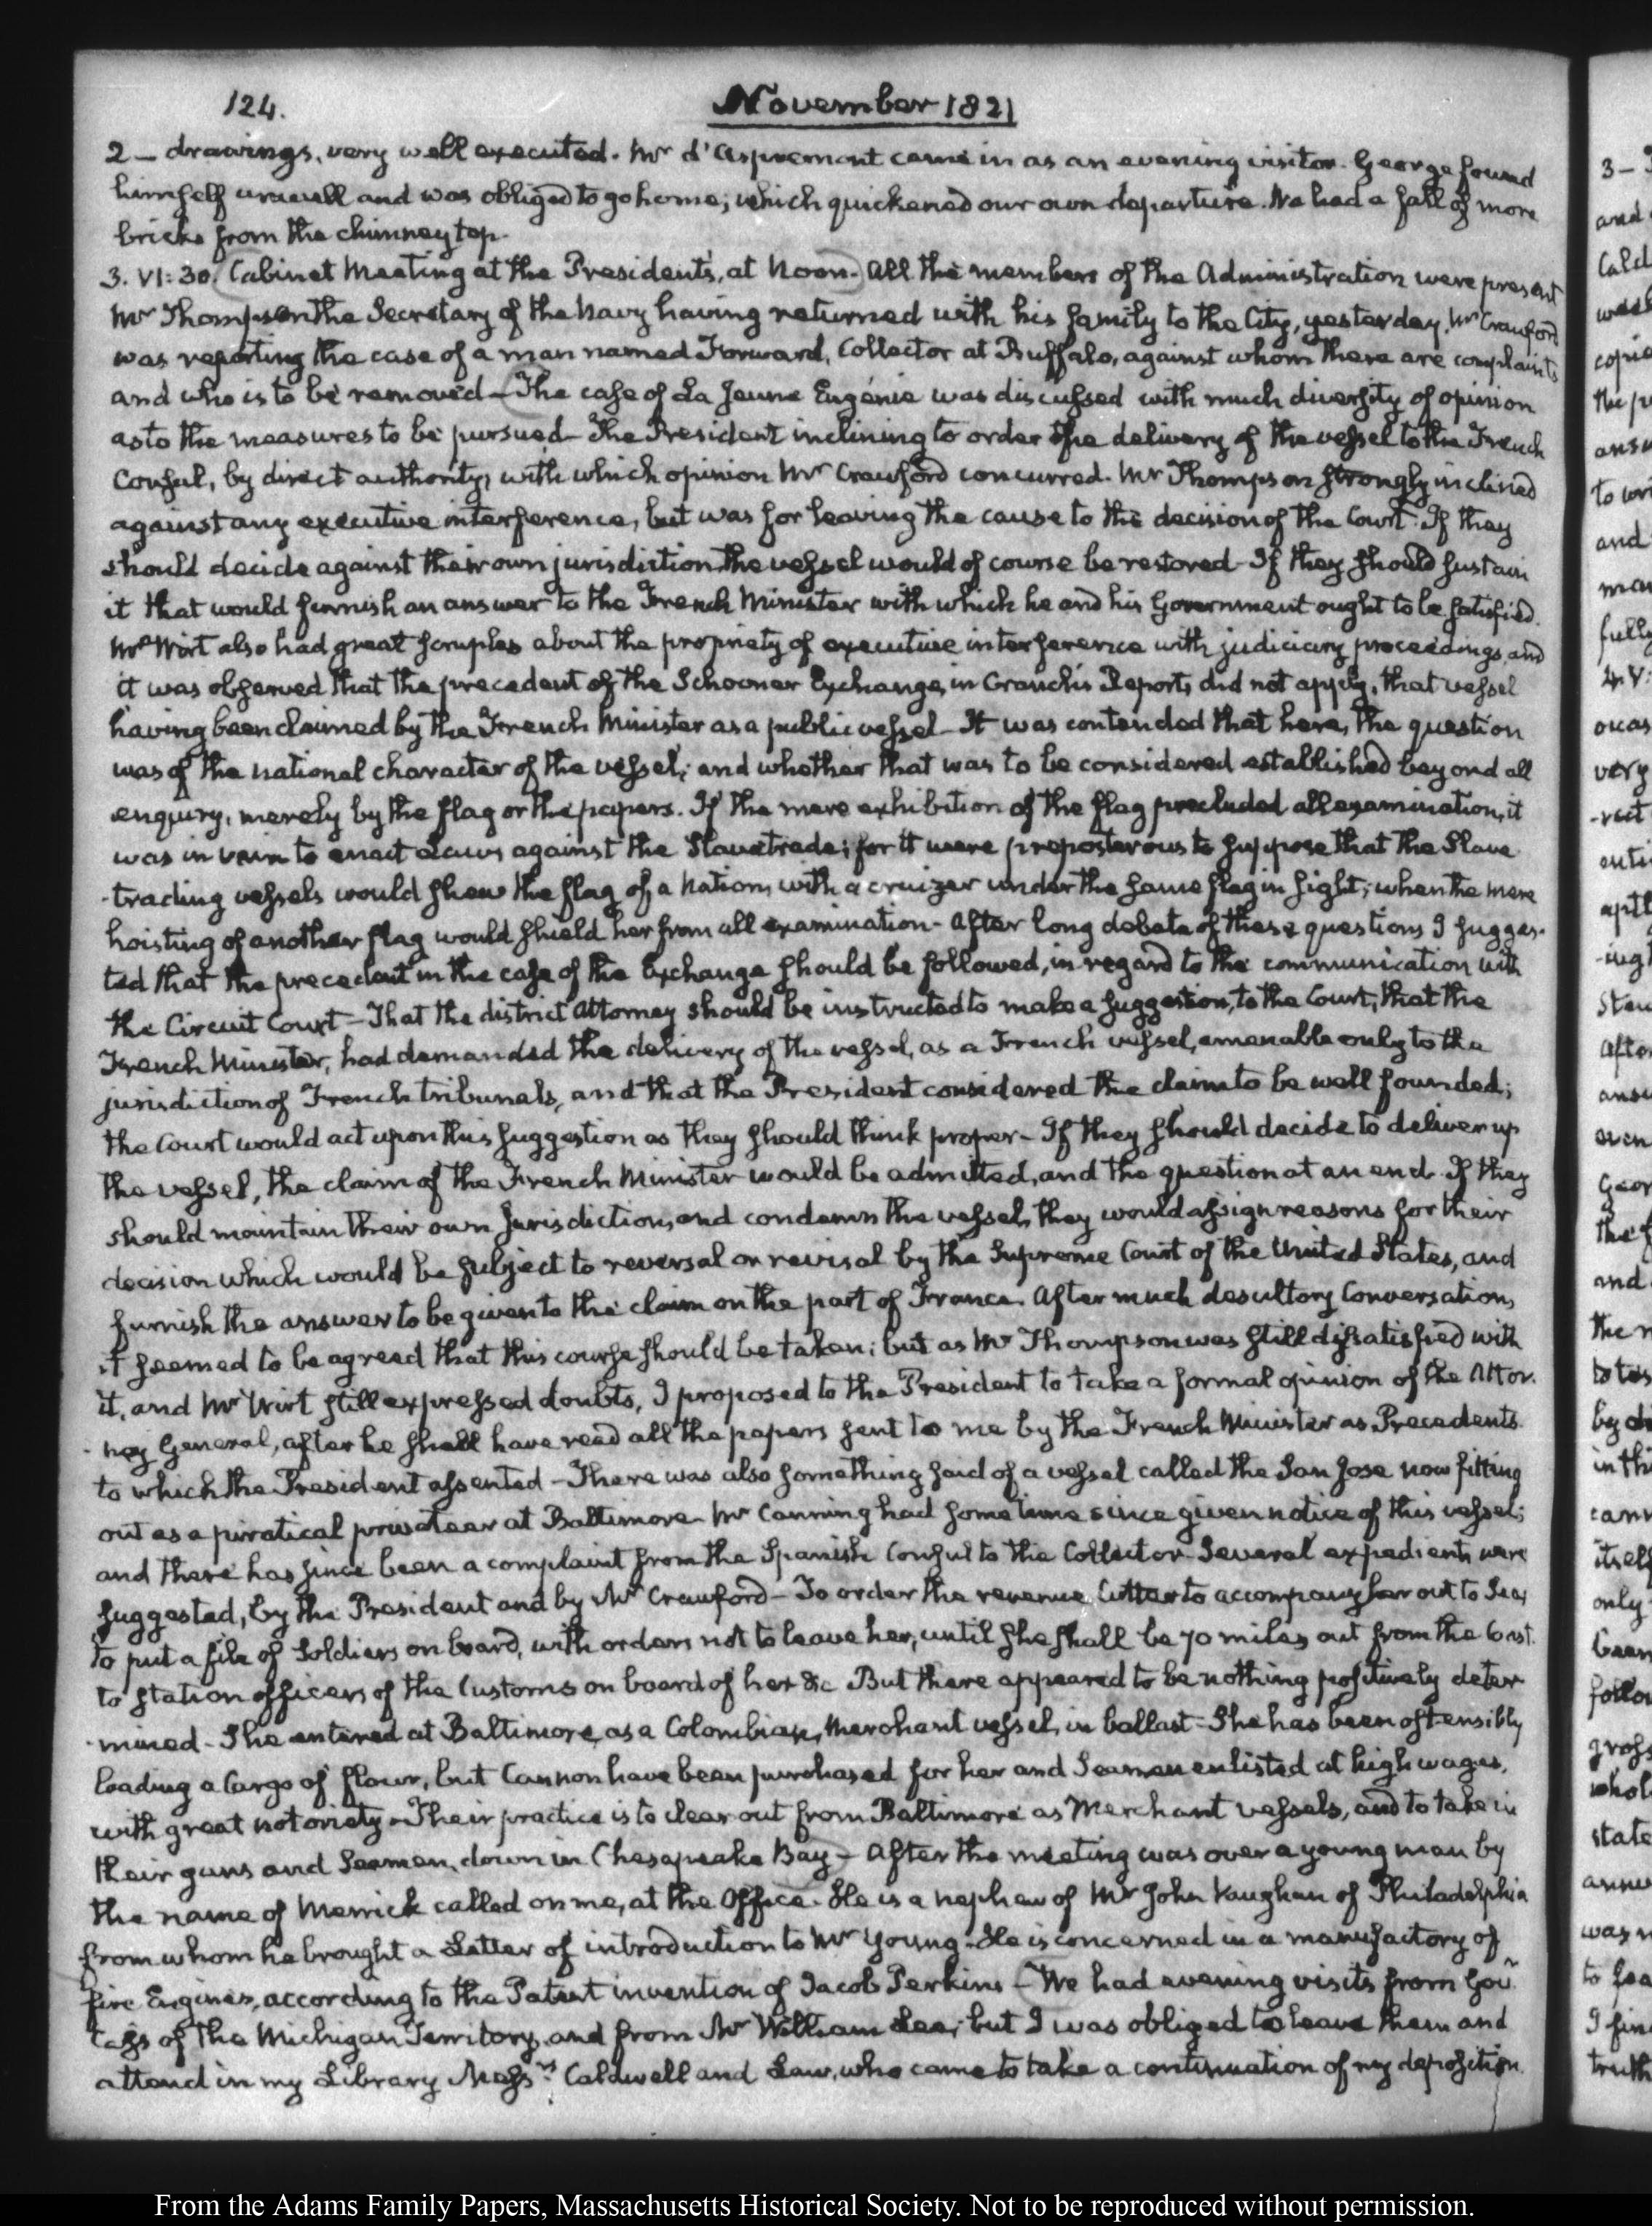 124.
November 1821
2 – drawings, very well executed. Mr d'Aspremont came in as an evening visitor. George found
himself unwell and was obliged to go home; which quickened our own departure. We had a fall of more
bricks from the chimney top.
3. VI:30. Cabinet Meeting at the President's, at Noon. All the members of the Administration were present
Mr Thompson the Secretary of the Navy having returned with his family to the City, yesterday. Mr Crawford
was reporting the case of a man named Forward, Collector at Buffalo, against whom there are complaints
and who is to be removed – The case of La Jeune Eugénie was discussed with much diversity of opinion
as to the measures to be pursued – The President inclining to order the delivery of the vessel to the French
Consul, by direct authority, with which opinion Mr Crawford concurred. Mr Thompson strongly inclined
against any executive interference, but was for leaving the cause to the decision of the Court. If they
should decide against their own jurisdiction, the vessel would of course be restored – If they should sustain
it that would furnish an answer to the French Minister with which he and his Government ought to be satisfied.
Mr Wirt also had great scruples about the propriety of executive interference with judiciary proceedings and
it was observed that the precedent of the Schooner Exchange, in Cranch's Reports did not apply, that vessel
having been claimed by the French Minister as a public vessel – It was contended that here, the question
was of the national character of the vessel; and whether that was to be considered established beyond all
enquiry, merely by the flag or the papers. If the mere exhibition of the flag precluded all examination, it
was in vain to enact Laws against the Slave trade; for it were preposterous to suppose that the Slave
-trading vessels would shew the flag of a Nation, with a cruizer under the same flag in sight; when the mere
hoisting of another flag would shield her from all examination – After long debate of these questions I sugges-
ted that the precedent in the case of the Exchange should be followed, in regard to the communication with
the Circuit Court – That the district Attorney should be instructed to make a suggestion, to the Court, that the
French Minister, had demanded the delivery of the vessel, as a French vessel, amenable only to the
jurisdiction of French tribunals, and that the President considered the claim to be well founded;
the Court would act upon this suggestion as they should think proper – If they should decide to deliver up
the vessel, the claim of the French Minister would be admitted, and the question at an end. If they
should maintain their own Jurisdiction, and condemn the vessel, they would assign reasons for their
decision which would be subject to reversal or revisal by the Supreme Court of the United States, and
furnish the answer to be given to the claim on the part of France. After much desultory Conversation,
it seemed to be agreed that this course should be taken; but as Mr Thompson was still dissatisfied with
it, and Mr Wirt still expressed doubts, I proposed to the President to take a formal opinion of the Attor-
-ney General, after he shall have read all the papers sent to me by the French Minister as Precedents
to which the President assented – There was also something said of a vessel called the San Jose now fitting
out as a piratical privateer at Baltimore. Mr Canning had some time since given notice of this vessel;
and there has since been a complaint from the Spanish Consul to the Collector. Several expedients were
suggested, by the President and by Mr Crawford – To order the revenue Cutter to accompany her out to Sea,
to put a file of Soldiers on board, with orders not to leave her, until she shall be 70 miles out from the Coast.
to station officers of the Customs on board of her &c But there appeared to be nothing positively deter
-mined – She entered at Baltimore, as a Colombian, Merchant vessel, in ballast – She has been ostensibly
loading a Cargo of flour, but Cannon have been purchased for her and Seamen enlisted at high wages,
with great notoriety – Their practice is to clear out from Baltimore as Merchant vessels, and to take in
their guns and Seamen, down in Chesapeake Bay – After the meeting was over a young man by
the name of Merrick called on me, at the Office. He is a nephew of Mr John Vaughan of Philadelphia
from whom he brought a Letter of introduction to Mr Young. He is concerned in a manufactory of
fire Engines, according to the Patent invention of Jacob Perkins – We had evening visits from Govr
Cass of the Michigan Territory, and from Mr William Lee; but I was obliged to leave them and
attend in my Library Messrs Caldwell and Law, who came to take a continuation of my deposition.
From the Adams Family Papers, Massachusetts Historical Society. Not to be reproduced without permission.